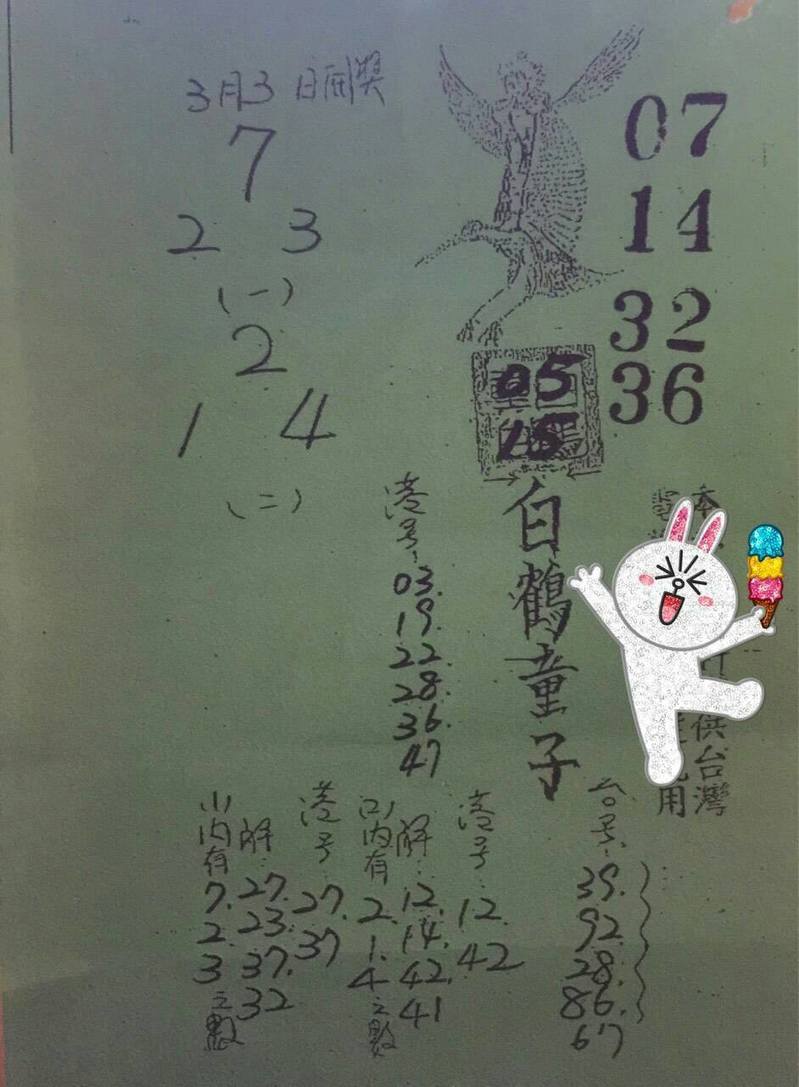 3月3日開獎
7
2 3
(一)
2
1 4
(二)
07
14
32
36
05
15
白鶴童子
港号:
03.
19.
22.
28.
36.
47
本
電
供台灣
用
台号:
39.
92.
28.
86.
67
港号:
12.
42
解:
12.
14.
42.
41
(2)内有
2.
1.
4
之數
港号:
27.
37
解:
27.
23.
37.
32
(1)内有
7.
2.
3
之數